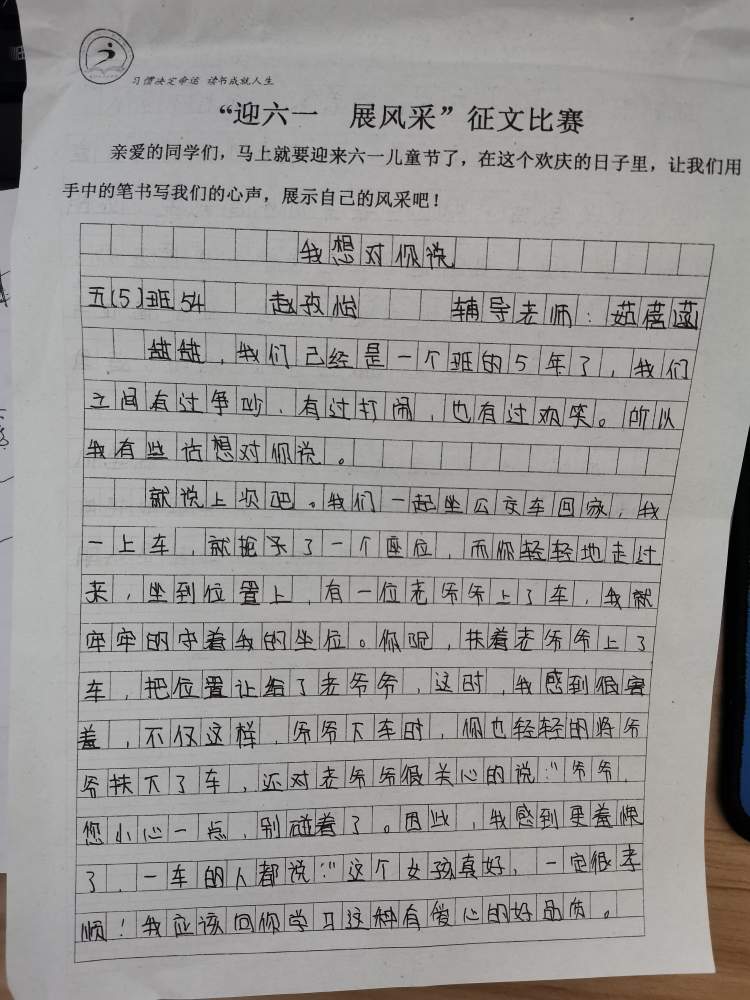 习惯决定命运 读书成就人生
“迎六一 展风采”征文比赛
亲爱的同学们，马上就要迎来六一儿童节了，在这个欢庆的日子里，让我们用
手中的笔书写我们的心声，展示自己的风采吧！
我想对你说
五(5)班54 赵孜怡 辅导老师：茹蓓蕗
甜甜，我们已经是一个班的5年了，我们
之间有过争吵、有过打闹，也有过欢笑。所以
我有些话想对你说。
就说上次吧。我们一起坐公交车回家，我
一上车，就抢予了一个座位，而你轻轻地走过
来，坐到位置上，有一位老爷爷上了车，我就
牢牢的守着我的坐位。你呢，扶着老爷爷上了
车，把位置让给了老爷爷，这时，我感到很害
羞，不仅这样，爷爷下车时，你也轻轻的将爷
爷扶下了车，还对老爷爷很关心的说：“爷爷，
您小心一点，别碰着了。因此，我感到更羞愧
了，一车的人都说：“这个女孩真好，一定很孝
顺！我应该向你学习这种有爱心的好品质。